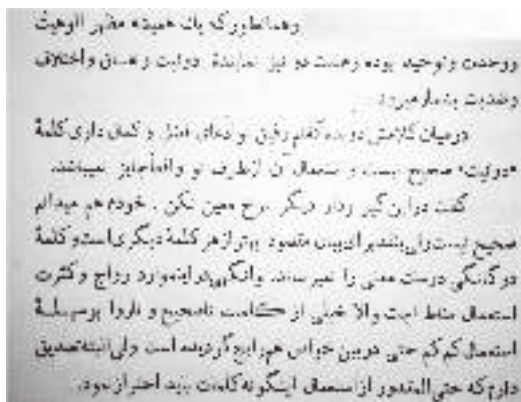 وهمانطور که یك همیشه مظهر الوهیت
ووحدت وتوحید بوده وهست دو نیز نمایندهٔ دوئیت و نفاق واختلاف
وضدیت بشمار میرود
درمیان کلامش دویده گفتم رفیق تو ادعای فضل و کمال داری کلمهٔ
«دوئیت» صحیح نیست و استعمال آن ازطرف تو واقعاً جایز نمیباشد.
گفت دراین گیر ودار دیگر نرخ معین نکن . خودم هم میدانم
صحیح نیست ولی بنظر برای بیان مقصود بهتر از هر کلمهٔ دیگری است و کلمهٔ
دوگانگی درست معنی را نمیرساند. وانگهی در اینموارد رواج و کثرت
استعمال مناط است والا خیلی از کلمات ناصحیح و ناروا بوسیلهٔ
استعمال کم کم حتی دربین خواص هم رایج گردیده است ولی البته تصدیق
دارم که حتی المقدور از استعمال اینگونه کلمات باید احتراز نمود.